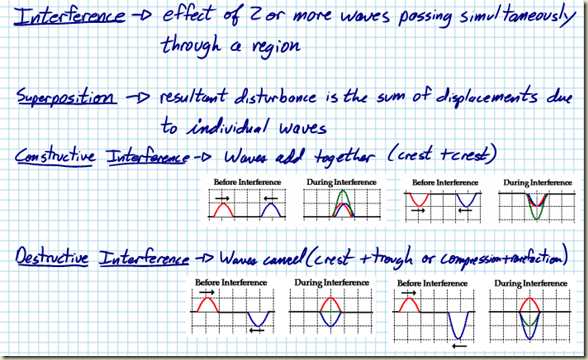 Interference → effect of 2 or more waves passing simultaneously
through a region
Superposition → resultant disturbance is the sum of displacements due
to individual waves
Constructive Interference → Waves add together (crest + crest)
Before Interference During Interference Before Interference During Interference
Destructive Interference → Waves cancel (crest + trough or compression + rarefaction)
Before Interference During Interference Before Interference During Interference